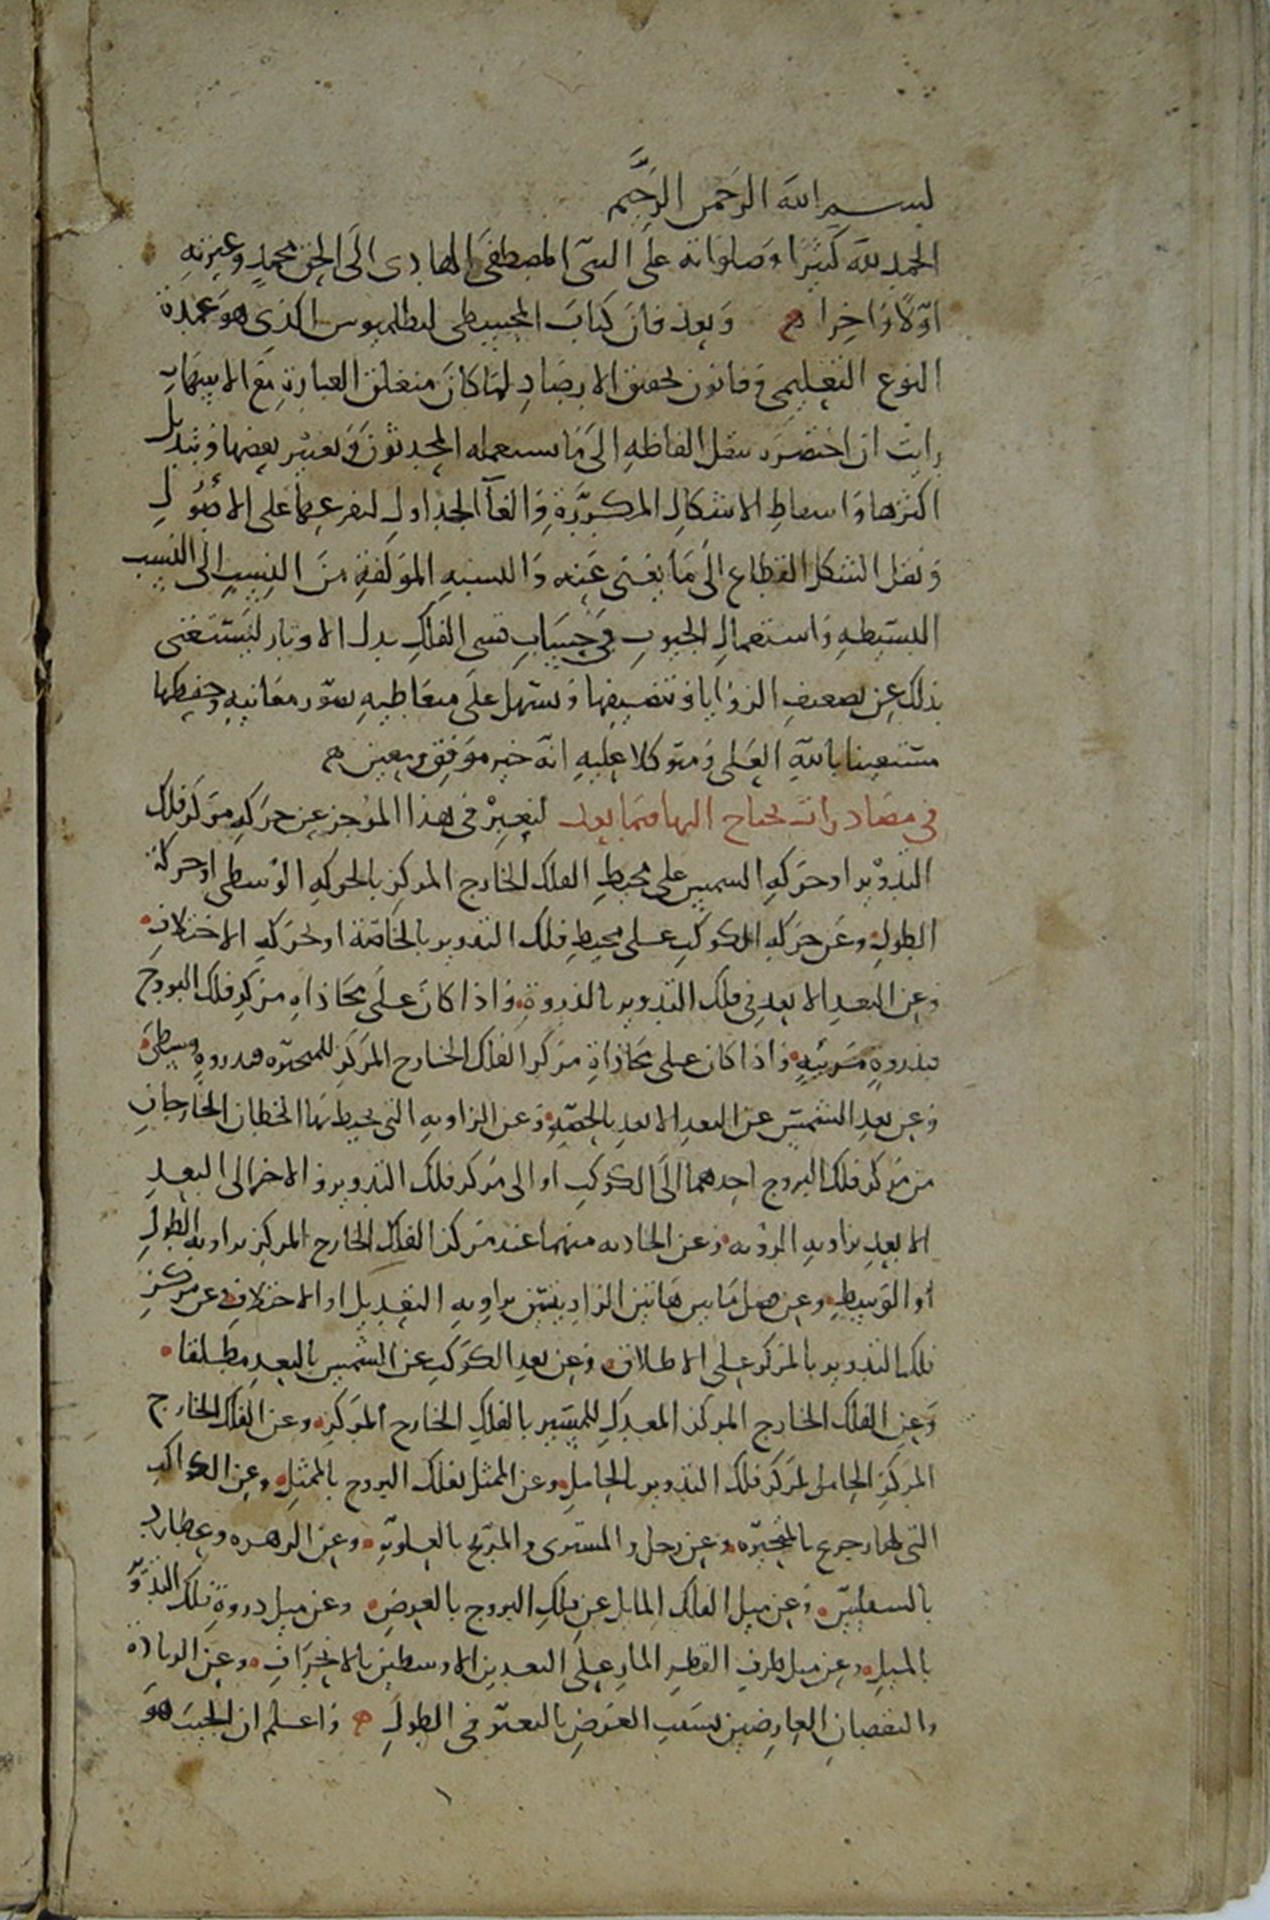 بسم الله الرحمن الرحيم
الحمد لله كثيرا وصلواته على النبي المصطفى الهادي الى الحق محمد وعترته
اولا واخرا وبعد فان كتاب المجسطي لبطلميوس الذي هو عمدة
النوع التعليمي وقانون تحقيق الارصاد لما كان منغلق العبارة مع الاسهاب
رايت ان اختصره بنقل الفاظه الى ما يستعمله المحدثون وتغيير بعضها وتبديل
اكثرها واسقاط الاشكال المكررة والغآ الجداول لتفرعها على الاصول
ونقل الشكل القطاع الى ما يغني عنه والنسبه المولفة من النسب الى النسب
البسيطه واستعمال الجيوب في حساب قسي الفلك بدل الاوتار ليستغنى
بذلك عن تضعيف الزوايا وتنصيفها وتسهل على متعاطيه تصور معانيه وحفظها
مستعينا بالله العلي ومتوكلا عليه انه خير موفق ومعين
في مصادرات يحتاج اليها فيما بعد لنعبر في هذا الموجز عن حركه مركز فلك
التدوير او حركه الشمس على محيط الفلك الخارج المركز بالحركه الوسطى او حركة
الطول وعن حركه الكوكب على محيط فلك التدوير بالخاصة او بحركه الاختلاف
وعن البعد الابعد في فلك التدوير بالذروة واذا كان على محاذاه مركز فلك البروج
فبذروة مرئيه واذا كان على محاذاة مركز الفلك الخارج المركز للمتحيره فبذروة وسطى
وعن بعد الشمس عن البعد الابعد بالحصة وعن الزاويه التي يحيط بها الخطان الخارجان
من مركز فلك البروج احدهما الى الكوكب او الى مركز فلك التدوير والاخر الى البعد
الابعد بزاويه الرويه وعن الحادثه منهما عند مركز الفلك الخارج المركز بزاويه الطول
او الوسط وعن فضل ما بين هاتين الزاويتين بزاويه التعديل او الاختلاف وعن مركز
فلك التدوير بالمركز على الاطلاق وعن بعد الكوكب عن الشمس بالبعد مطلقا
وعن الفلك الخارج المركز المعدل للمسير بالفلك الخارج المركز وعن الفلك الخارج
المركز الحامل لمركز فلك التدوير بالحامل وعن الممثل بفلك البروج بالممثل وعن الكواكب
التي لها رجوع بالمتحيره وعن زحل والمشتري والمريخ بالعلويه وعن الزهره وعطارد
بالسفليين وعن ميل الفلك المايل عن فلك البروج بالعرض وعن ميل ذروة فلك التدوير
بالميل وعن ميل طرفي القطر المار على البعدين الاوسطين بالانحراف وعن الزيادة
والنقصان العارضين بسبب العرض بالتعديل في الطول واعلم ان الجيب هو
١